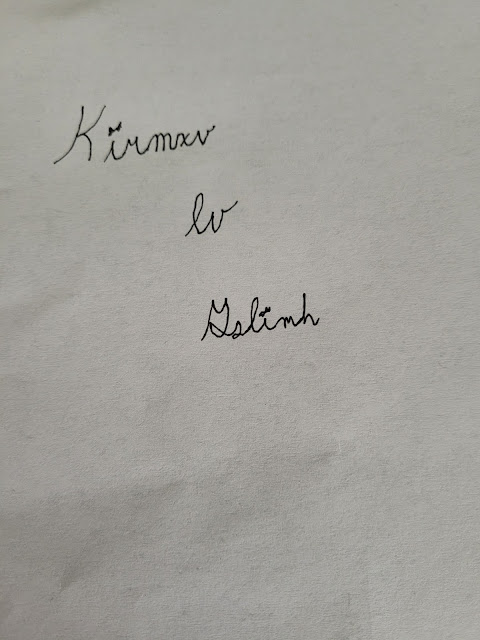 Kirmxv
lv
Gslimh